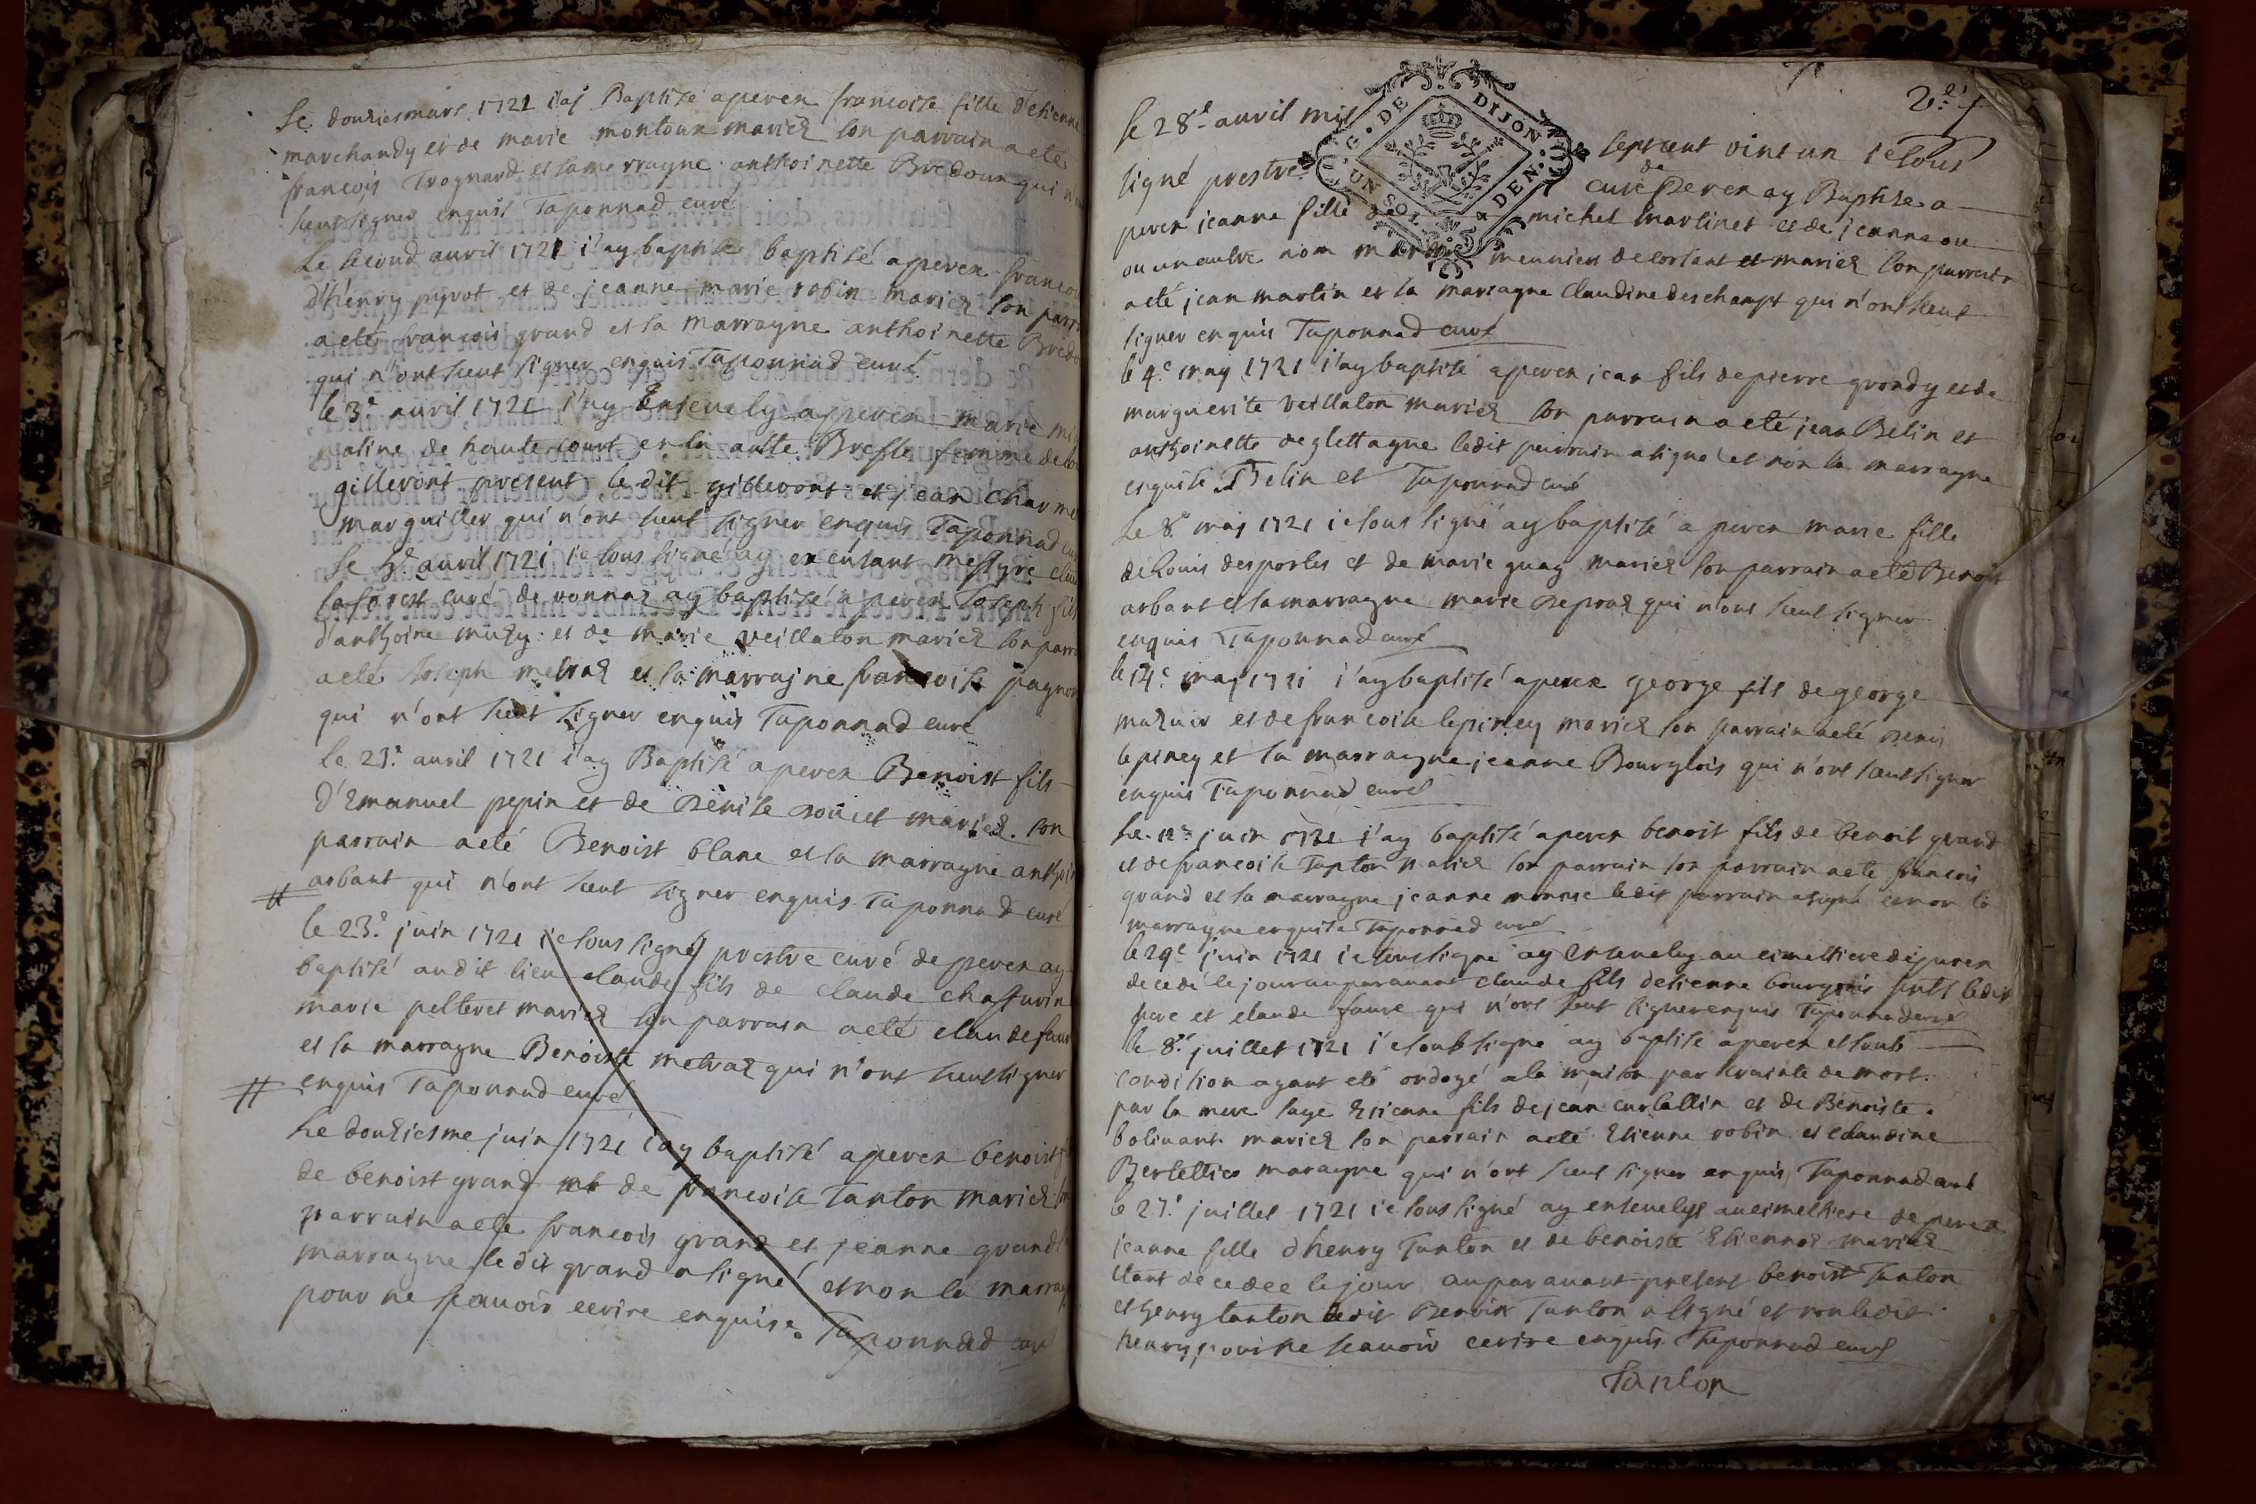 Le douziesmars 1721 i'aj Baptisé a perex francoise fille d'etienne
marchandy et de marie montoux mariez son parrain a eté
francois Trognard et sa marrayne anthoinette Bredoux qui n'
sceut signer enquis Taponnad curé
Le second avril 1721 i'ay baptisé baptisé a perex francoi
d'henry pyrot et de jeanne marie robin mariez son parr
a eté francois grand et sa marrayne anthoinette Bredo
qui n'ont sceut signer enquis Taponnad curé
le 3e avril 1721 i'ay Ensevely a perex marie mi
natine de haute court en la aulte Bresse femme de
gillevont present le dit gillevont et jean charme
marguiller qui n'ont sceut signer enquis Taponnad cu
Le avril 1721 ie sous signé ay en ensant messyre clau
laforest curé de vonnaz ay baptisé a perex Joseph fils
d'anthoine muzy et de marie veillaton mariez son parr
a eté Joseph metraz et sa marrajne francoise pagnon
qui n'ont sceut signer enquis Taponnad curé
le 23e avril 1721 i'ay Baptisé a perex Benoist fils
d'Emanuel pepin et de Denise mariez son
parrain a eté Benoist blanc et sa marrayne anthoin
arbant qui n'ont sceut signer enquis Taponnad curé
le 23e juin 1721 ie sous signé prestre curé de perex ay
baptisé audit lieu claude fils de claude chassurin
marie pelleret mariez son parrain a eté claude faur
et sa marrayne Benoiste metraz qui n'ont sceut signer
enquis Taponnad curé
Le douziesme juin 1721 i'ay baptisé a perex benoist
de benoist grand et de francoise Tanton mariez
parrain a eté francois grand et jeanne grand
marrayne ledit grand a signé et non la marray
pour ne scavoir ecrire enquise Taponnad curé
2e f
DE DIJON
G.
UN SOL
4 DEN.
Le 28e avril mil sept cent vint un ie sous
signé prestre curé de Perex ay Baptisé a
perex jeanne fille de michel martinet et de jeanne ou
ou un autre nom meunier de corsant et mariez son parrain
a eté jean martin et sa marrayne Claudine deschamps qui n'ont sceut
signer enquis Taponnad curé
le 4e may 1721 i'ay baptisé a perex jean fils de pierre grondy et de
marguerite veillaton mariez son parrain a eté jean Belin et
anthoinette de glettagne ledit parrain a signé et non la marrayne
enquise Belin et Taponnad curé
Le 8e maj 1721 ie sous signé ay baptisé a perex marie fille
de louis desportes et de marie guay mariez son parrain a eté Benoit
arbant et sa marrayne marie Depraz qui n'ont sceut signer
enquis Taponnad curé
le 14e may 1721 i'ay baptisé a perex george fils de george
mazuir et de francoise lepiney mariez son parrain a eté Denis
lepiney et sa marrayne jeanne Bourgeois qui n'ont sceut signer
enquis Taponnad curé
Le 12e juin 1721 i'ay baptisé a perex benoit fils de benoit grand
et de francoise Tanton mariez son parrain son parrain a eté francois
grand et sa marrayne jeanne ledit parrain a signé et non la
marrayne enquise Taponnad curé
le 29e juin 1721 ie sous signé ay Ensevely au cimettiere de perex
decedé le jour auparavant claude fils d'etienne bourgeois ledit
pere et claude faure qui n'ont sceut signer enquis Taponnad curé
le 8e juillet 1721 ie sous signé ay baptisé a perex et sous
condition ayant eté ondoyé a la maison par crainte de mort
par la mere sage Etienne fils de jean curtallin et de Benoiste
bolivant mariez son parrain a eté Etienne robin et Claudine
marayne qui n'ont sceut signer enquis Taponnad curé
le 27e juillet 1721 ie sous signé ay ensevelyt au cimettiere de perex
jeanne fille d'henry Tanton et de benoiste Etiennez mariez
etant decedee le jour auparavant present benoist Tanton
et henry tanton ledit Benoit Tanton a signé et non ledit
henry pour ne scavoir ecrire enquis Taponnad curé
Tanton